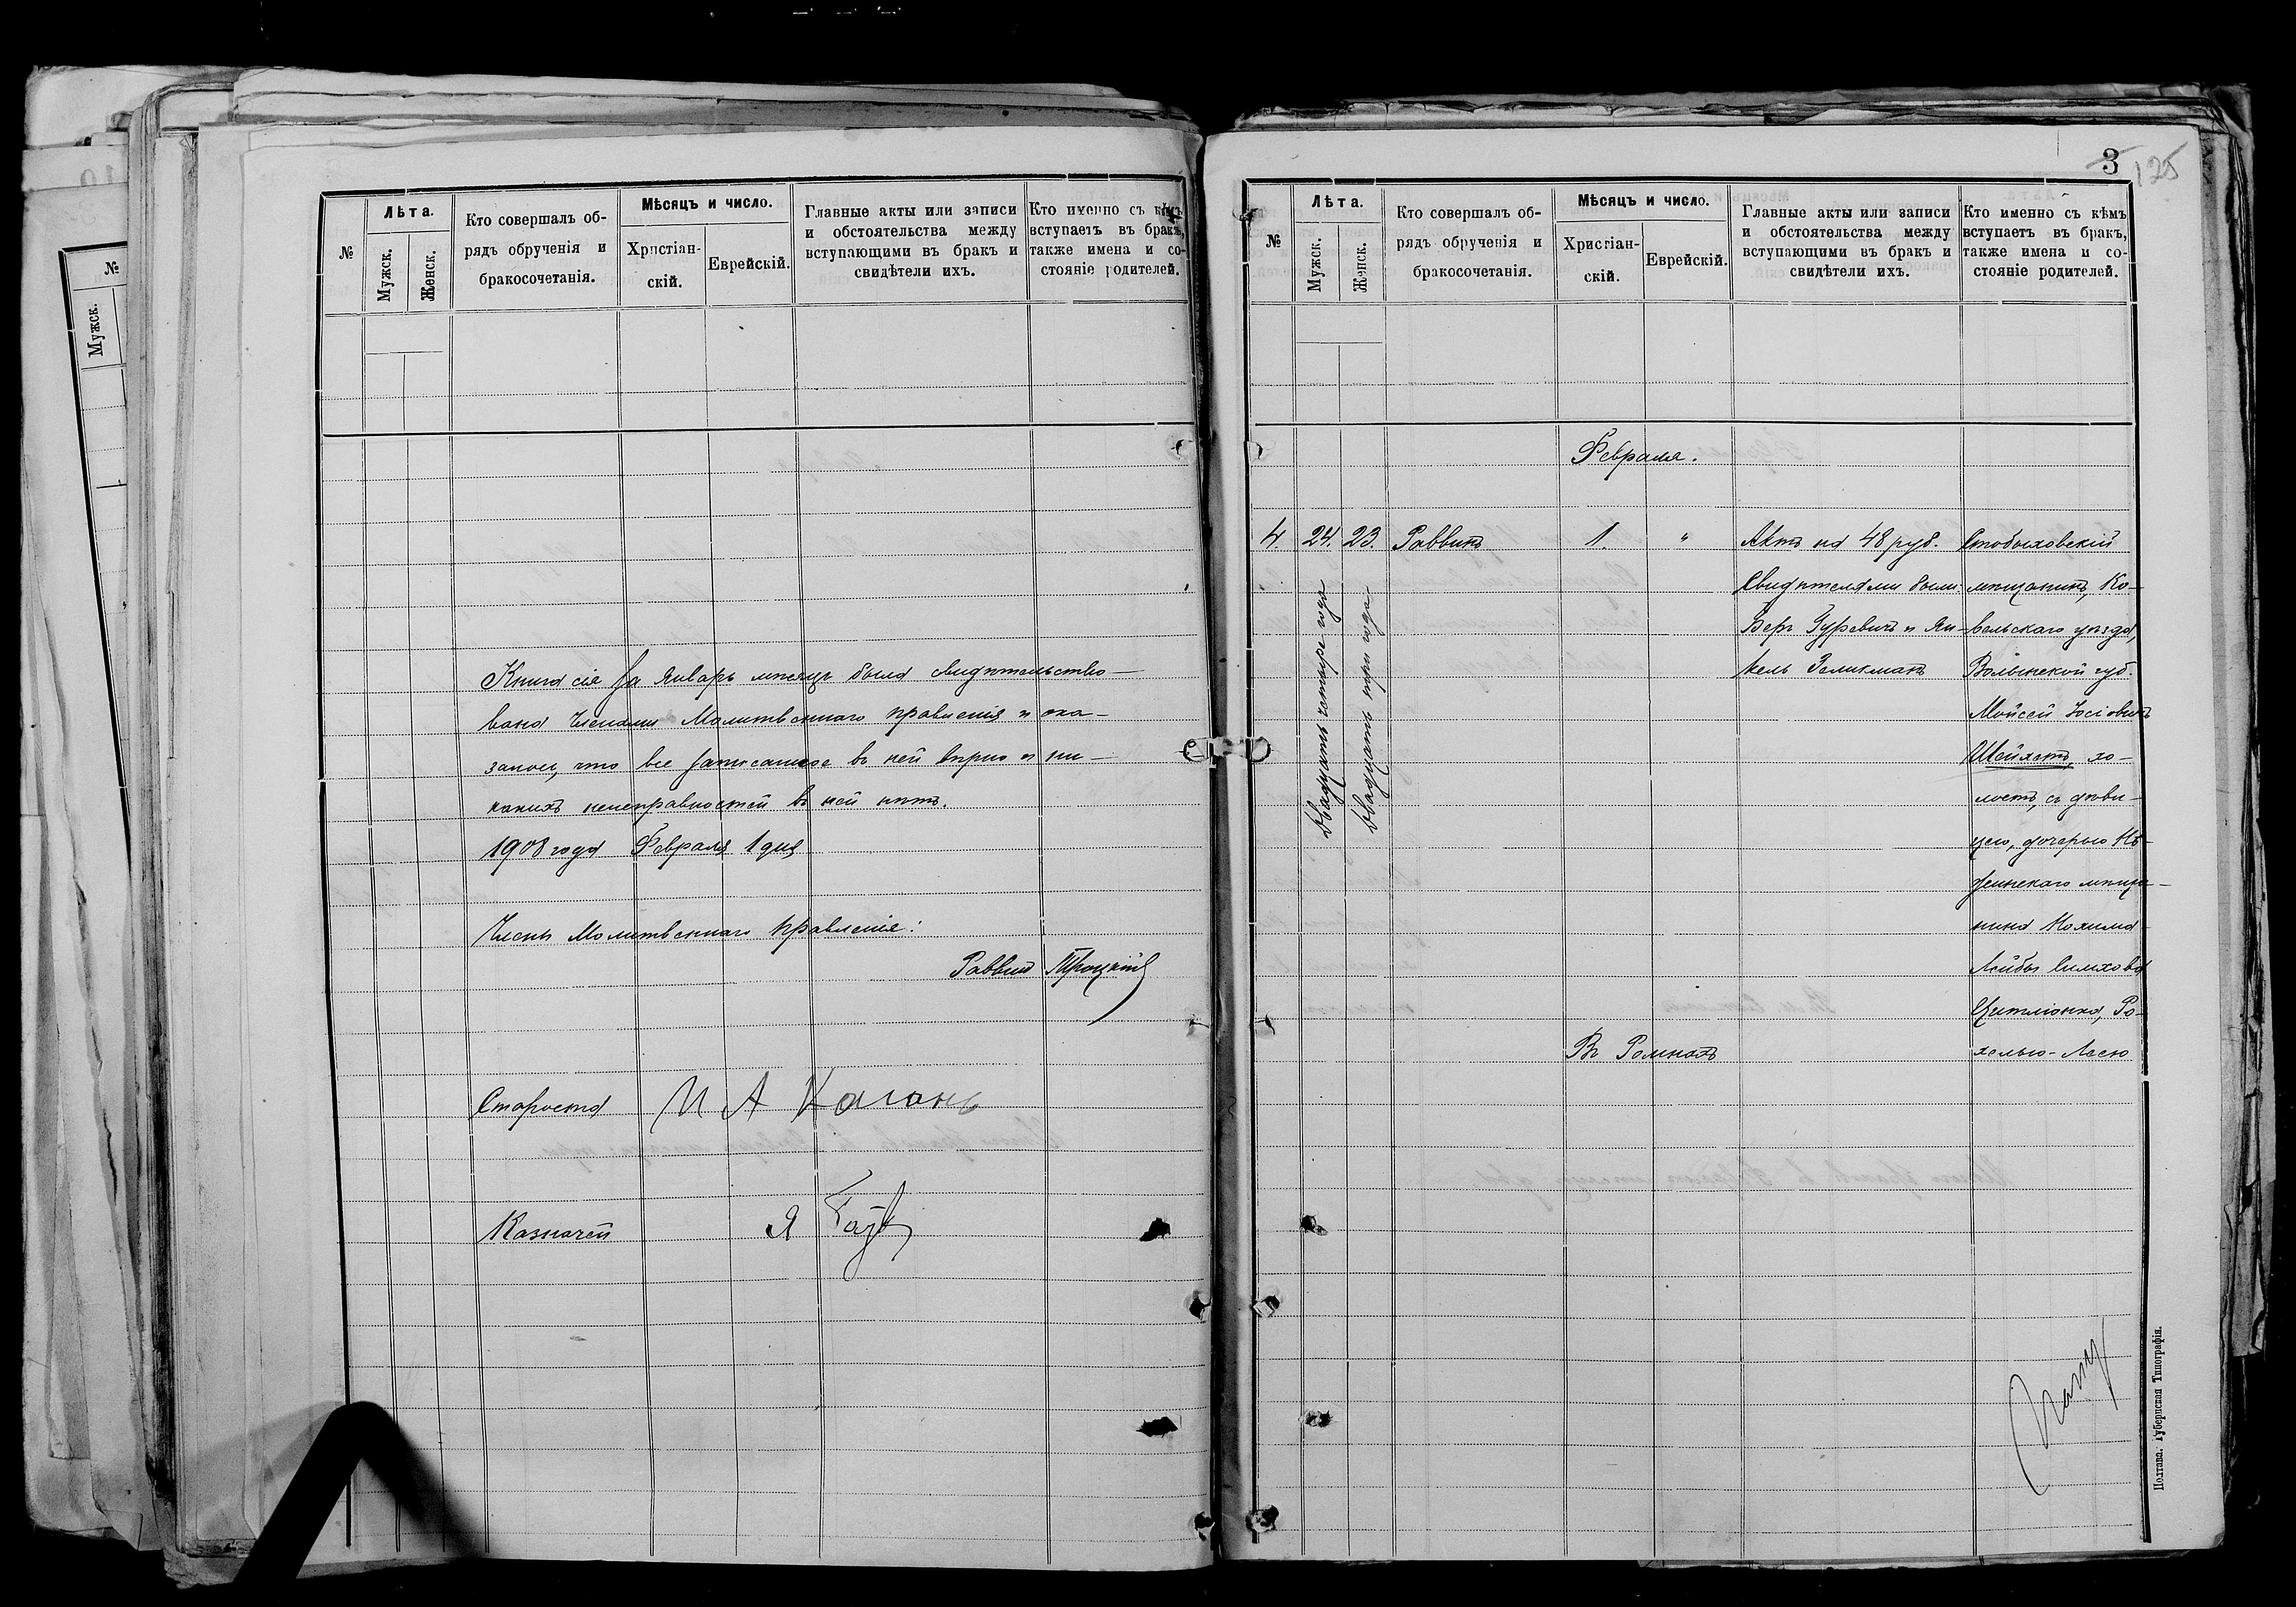 №
Мужск.
№
Лѣта.
Мужск.
Женск.
Кто совершалъ об-
рядъ обрученія и
бракосочетанія.
Мѣсяцъ и число.
Христіан-
скій.
Еврейскій.
Главные акты или записи
и обстоятельства между
вступающими въ бракъ и
свидѣтели ихъ.
Кто именно съ кѣмъ
вступаетъ въ бракъ,
также имена и со-
стояніе родителей.
Книга сія за Январь мѣсяцъ была свидѣтельство-
вана Членами Молитвеннаго правленія и ока-
залось, что все записанное въ ней вѣрно и ни-
какихъ неисправностей въ ней нѣтъ.
1908 года Февраля 1 дня
Члены Молитвеннаго правленія:
Раввинъ Троцкій
Староста И А Каганъ
Казначей Я
3
125
№
Лѣта.
Мужск.
Женск.
Кто совершалъ об-
рядъ обрученія и
бракосочетанія.
Мѣсяцъ и число.
Христіан-
скій.
Еврейскій.
Главные акты или записи
и обстоятельства между
вступающими въ бракъ и
свидѣтели ихъ.
Кто именно съ кѣмъ
вступаетъ въ бракъ,
также имена и со-
стояніе родителей.
Февраля.
4.
24.
двадцать четыре года
23.
двадцать три года
Раввинъ
1.
"
Актъ на 48 руб.
Свидѣтелями были
Беръ Гуревичъ и Ян-
кель Зеликманъ
Стобыховскій
мѣщанинъ, Ко-
вельскаго уѣзда,
Волынской губ.
Мойсей Іосіовичъ
Шейхетъ, хо-
лостъ, съ дѣви-
цею, дочерью Нѣ-
жинскаго мѣща-
нина Нохима-
Лейбы Симхова
Цитліонка, Ро-
хелью-Лесю
Въ Ромнахъ
Полтава. Губернская Типографія.